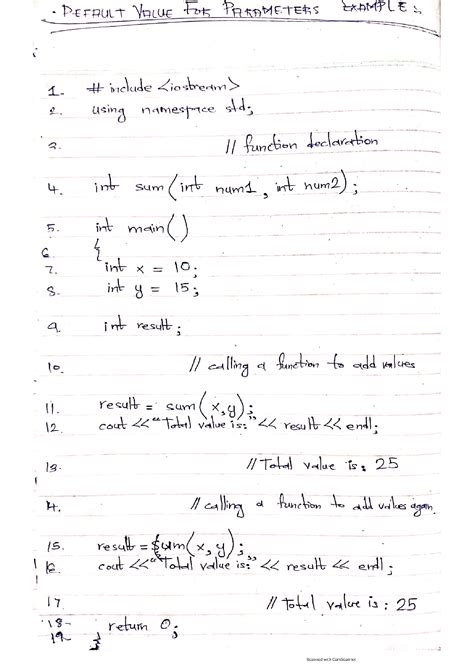 . DEFAULT VALUE FOR PARAMETERS EXAMPLE :
1. # include <iostream>
2. using namespace std;
3. // function declaration
4. int sum(int num1, int num2);
5. int main()
6. {
7. int x = 10;
8. int y = 15;
9. int result;
10. // calling a function to add values
11. result = sum(x,y);
12. cout << "Total value is:" << result << endl;
13. // Total value is: 25
14. // calling a function to add values again.
15. result = sum(x, y);
16. cout << "Total value is:" << result << endl;
17. // Total value is: 25
18- return 0;
19- }
Scanned with CamScanner